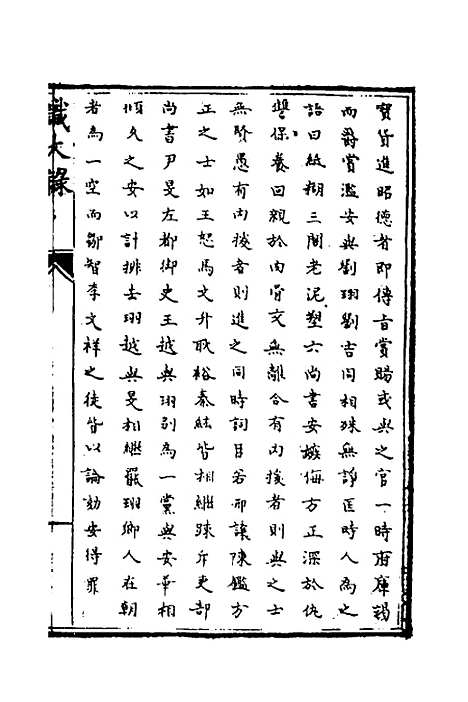 寶貨進昭德者即傳旨賞賜或與之官一時府庫竭
而爵賞濫安與劉珝劉吉同相殊無諍匡時人為之
語曰紙糊三閣老泥塑六尚書安嫉侮方正深於仇
讐保養回親於肉骨交無離合有內援者則與之士
無賢愚有內援者則進之同時詞目若邢讓陳鑑方
正之士如王恕馬文升耿裕秦紘皆相繼疎斥吏部
尚書尹旻左都御史王越與珝別為一黨與安華相
傾久之安以計排去珝越與旻相繼罷珝鄉人在朝
者為一空而鄒智李文祥之徒皆以論劾安得罪
識大錄